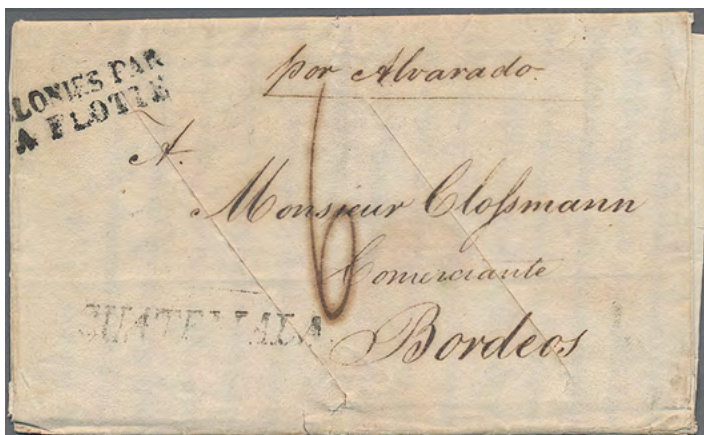 LONIES PAR
A FLOTTE
por Alvarado.
A.
Monsieur Cloſsmann
6
Comerciante
GUATEMALA
Bordeos